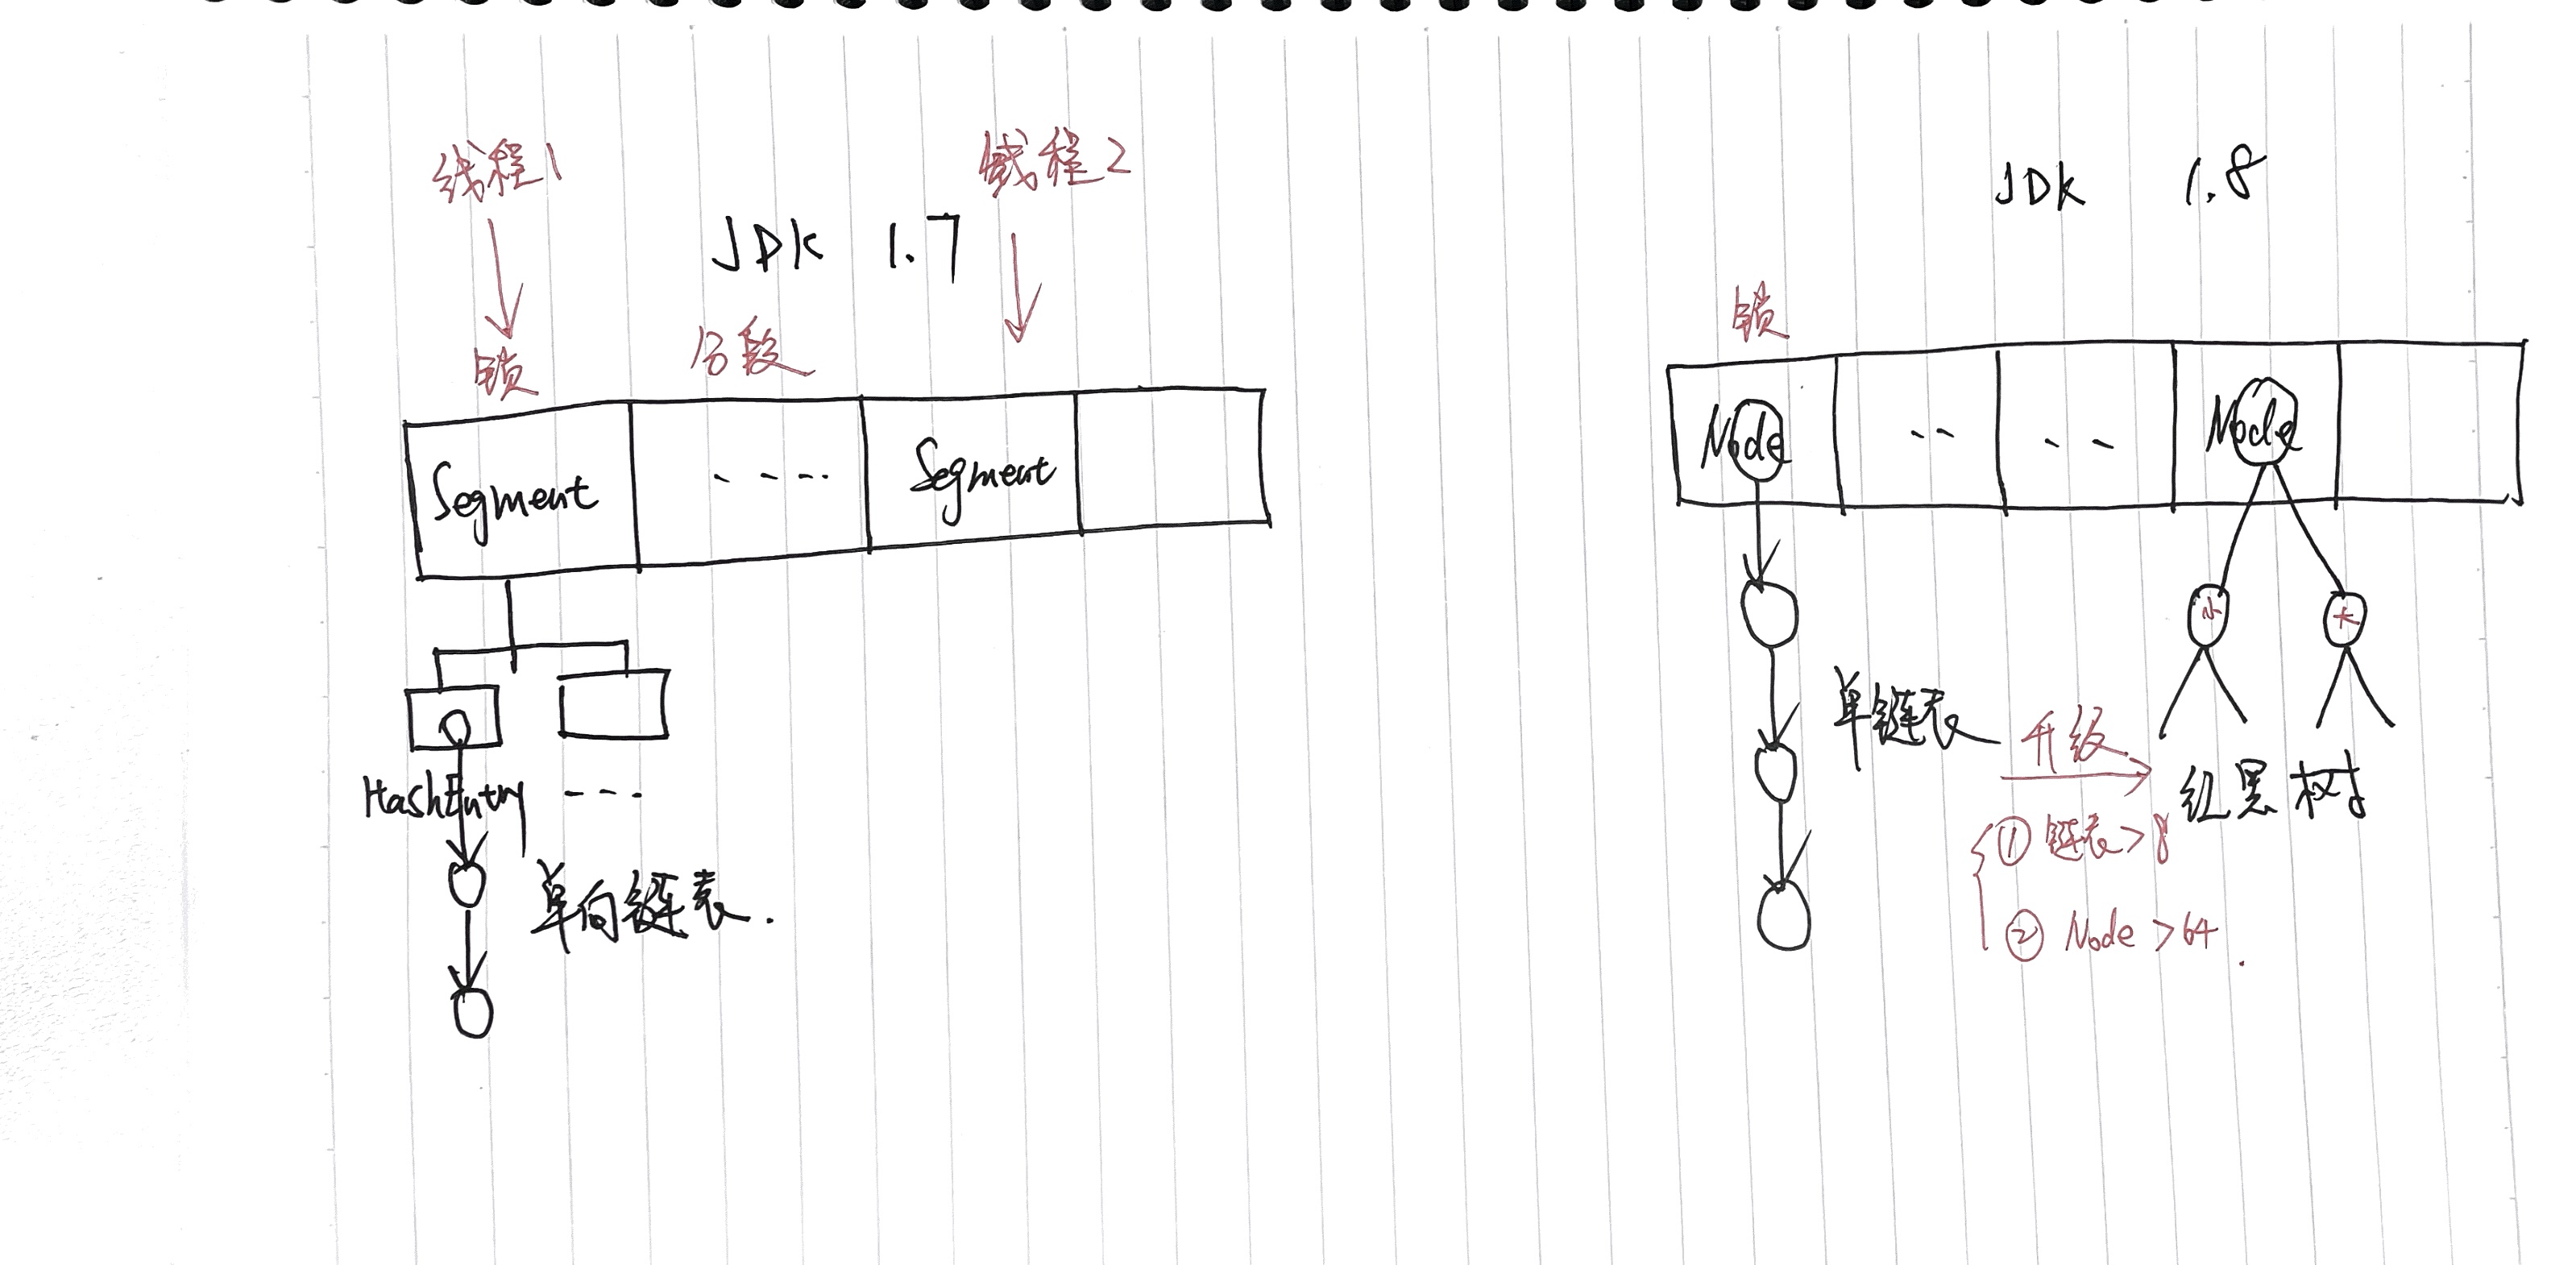 线程1
线程2
JDK 1.7
锁
分段
Segment
- - - -
Segment
HashEntry
- - -
单向链表.
JDK 1.8
锁
Node
- -
- -
Node
小
大
单链表
升级
红黑树
① 链表>8
② Node >64